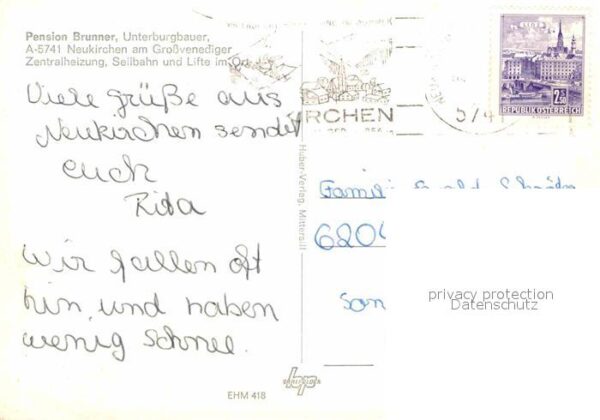 Pension Brunner, Unterburgbauer,
A-5741 Neukirchen am Großvenediger
Zentralheizung, Seilbahn und Lifte im Ort
Viele grüße aus
Neukirchen sendet
euch
Rita
wir fallen oft
hin, und haben
wenig schnee.
EHM 418
Huber-Verlag, Mittersill
RCHEN
574
LINZ
2.50
REPUBLIK ÖSTERREICH
Famili
6204
San
privacy protection
Datenschutz
bp